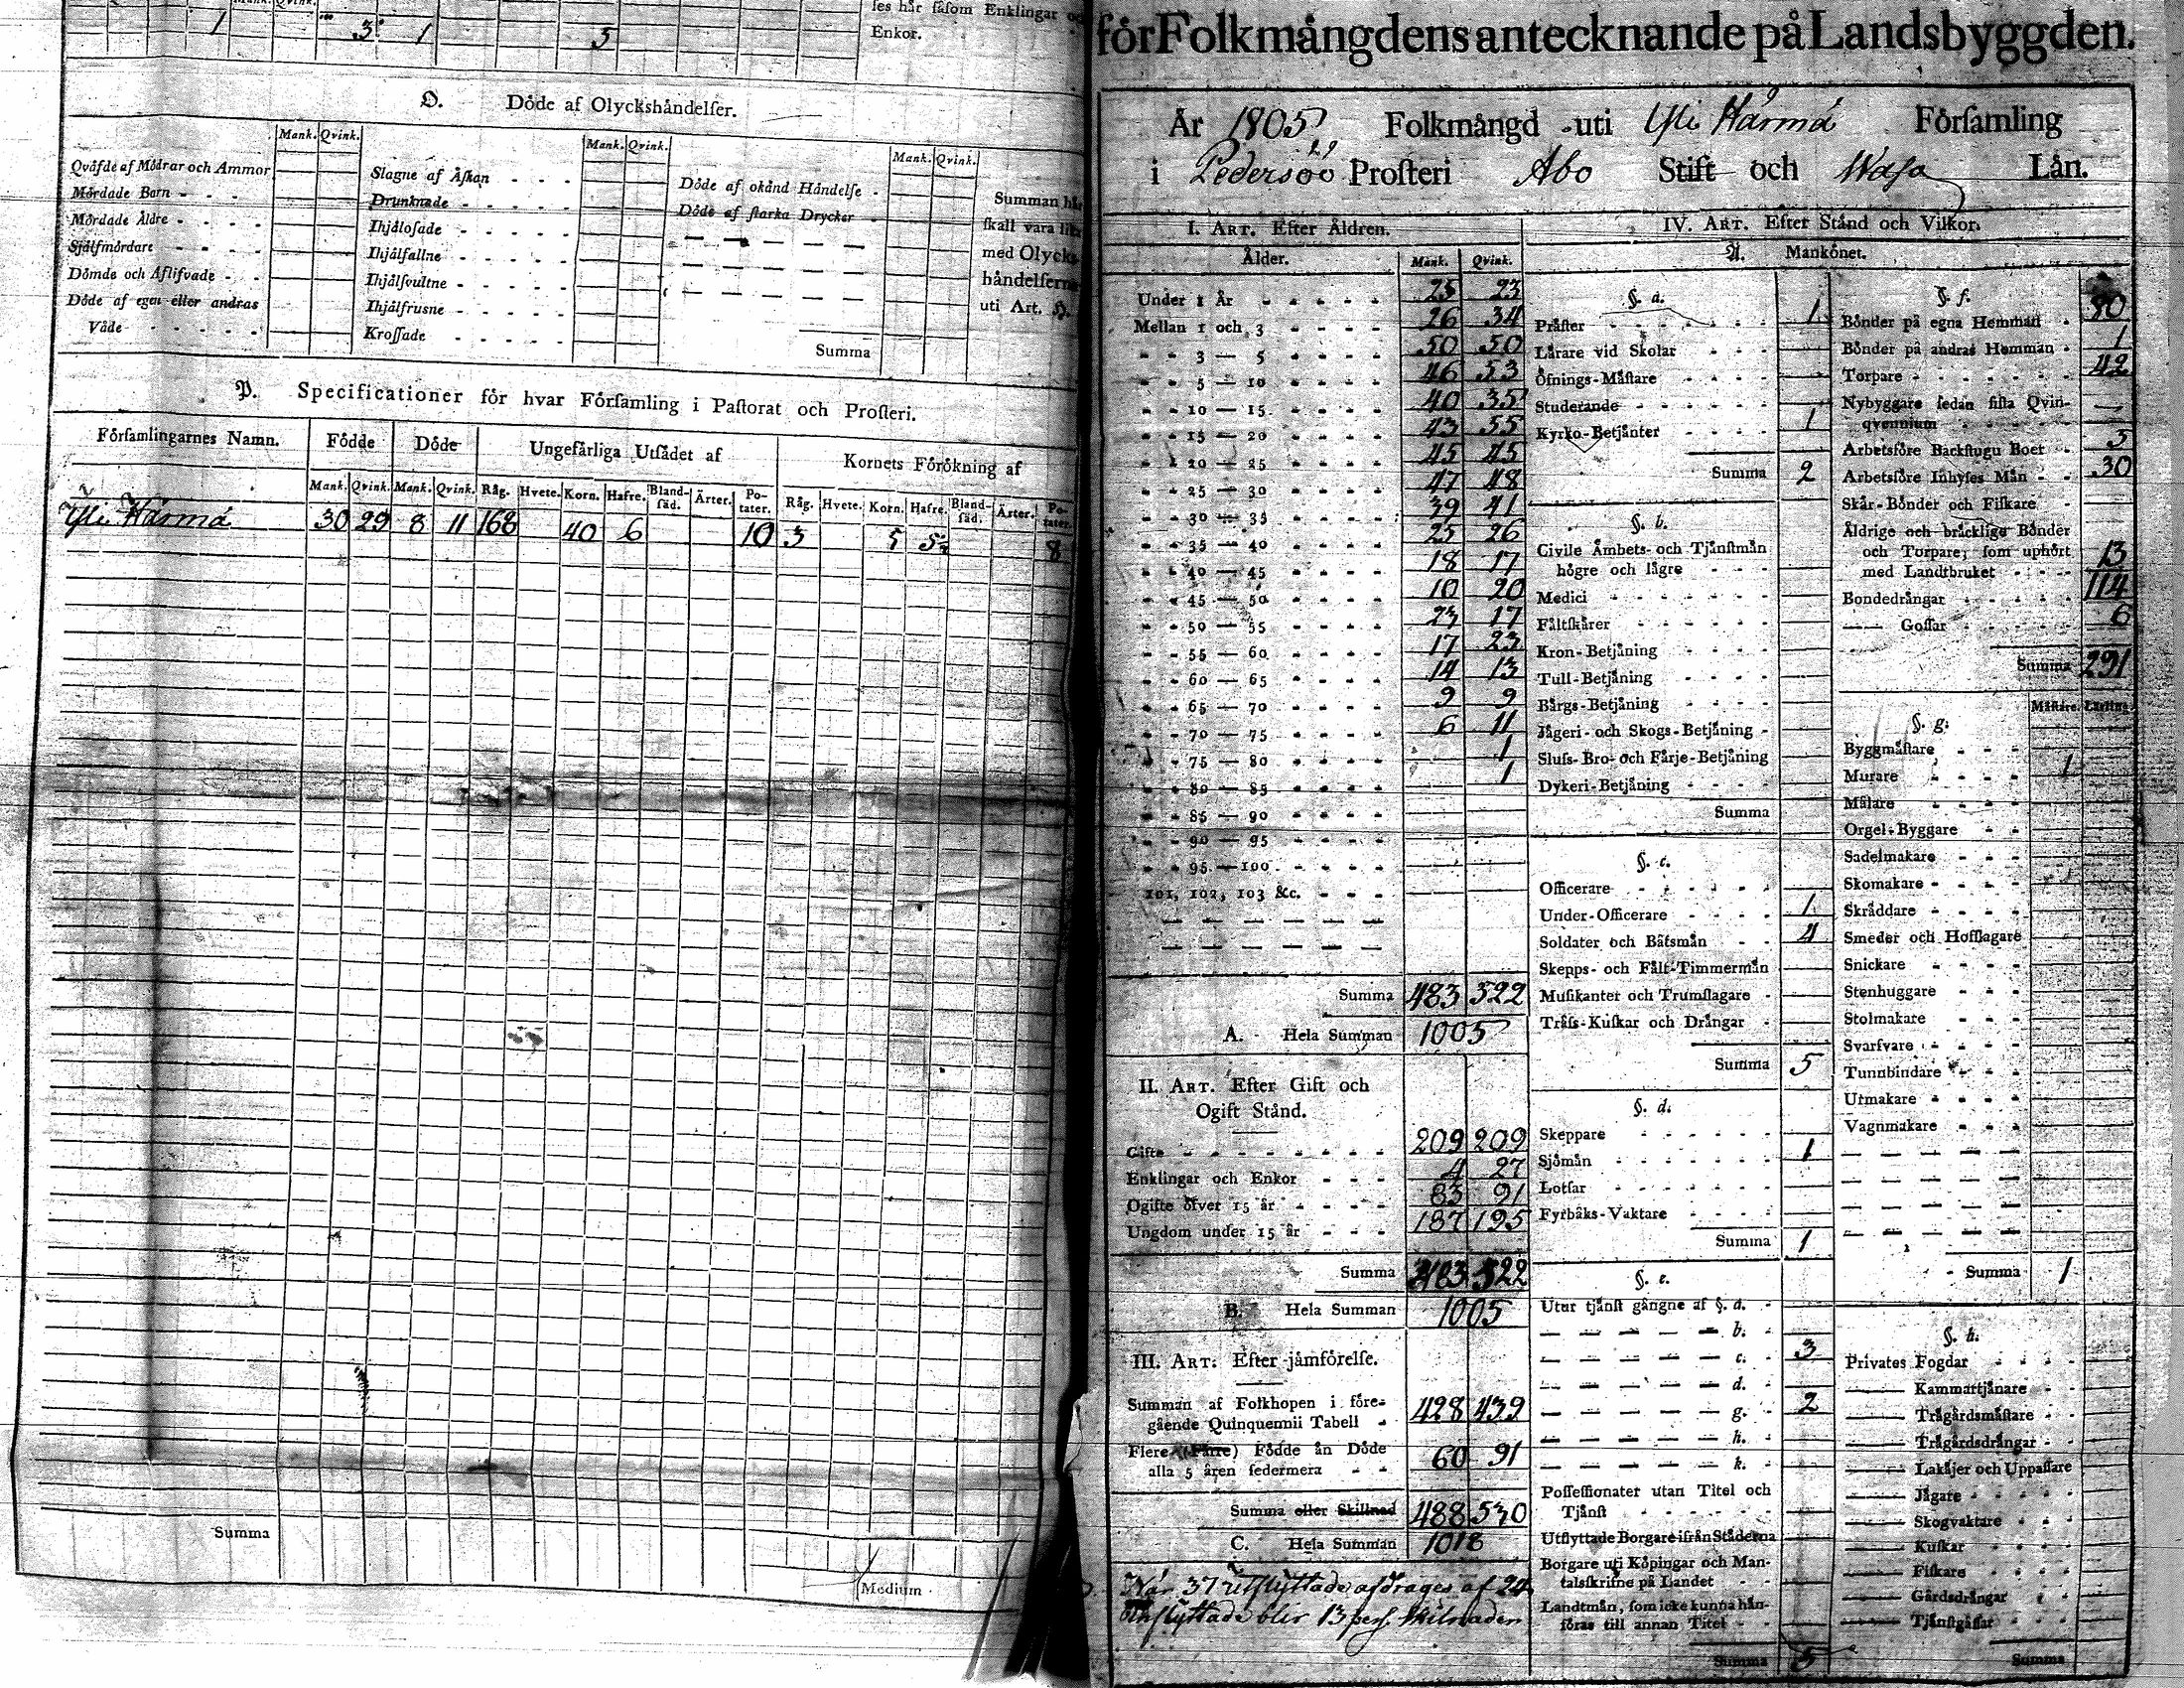 Mank. Qvink.
1 3 1 5
ses här såsom Enklingar
Enkor.
O. Döde af Olyckshändelser.
Mank. Qvink. Mank. Qvink. Mank. Qvink.
Qväfde af Mödrar och Ammor
Mördade Barn
Mördade Äldre
Själfmördare
Dömde och Aflifvade
Döde af egen eller andras
Våde
Slagne af Åskan
Drunknade
Ihjälosade
Ihjälfallne
Ihjälsvultne
Ihjälfrusne
Krossade
Döde af okänd Händelse
Döde af starka Drycker
Summa
Summan
skall vara
med Olycks-
händelserne
uti Art.
P. Specificationer för hvar Församling i Pastorat och Prosteri.
Församlingarnes Namn. Födde Döde Ungefärliga Utsädet af Kornets Förökning af
Mank. Qvink. Mank. Qvink. Råg. Hvete. Korn. Hafre. Bland-säd. Ärter. Po-tater. Råg. Hvete. Korn. Hafre. Bland-säd. Ärter. Po-tater.
Yli Härmä 30 29 8 11 168 40 6 10 3 5 5½ 8
Summa
Medium
för Folkmängdens antecknande på Landsbyggden.
År 1805 Folkmängd uti Yli Härmä Församling
i Pedersöö Prosteri Åbo Stift och Wasa Län.
I. ART. Efter Åldren.
Ålder. Mank. Qvink.
Under 1 År 25 23
Mellan 1 och 3 26 34
3 — 5 50 50
5 — 10 46 53
10 — 15 40 35
15 — 20 43 55
20 — 25 45 45
25 — 30 47 48
30 — 35 39 41
35 — 40 25 26
40 — 45 18 17
45 — 50 10 20
50 — 55 23 17
55 — 60 17 23
60 — 65 14 13
65 — 70 9 9
70 — 75 6 11
75 — 80 1
80 — 85 1
85 — 90
90 — 95
95 — 100
101, 102, 103 &c.
Summa 483 522
A. Hela Summan 1005
II. ART. Efter Gift och
Ogift Stånd.
Gifte 209 209
Enklingar och Enkor 4 27
Ogifte öfver 15 år 83 91
Ungdom under 15 år 187 195
Summa 483 522
B. Hela Summan 1005
III. ART. Efter jämförelse.
Summan af Folkhopen i före-
gående Quinquennii Tabell 428 439
Flere (Färre) Födde än Döde
alla 5 åren sedermera 60 91
Summa eller Skillnad 488 530
C. Hela Summan 1018
När 37 utflyttade afdrages af 24
inflyttade blir 13 pers. skilnaden
IV. ART. Efter Stånd och Vilkor.
A. Mankönet.
§. a.
Präster 1
Lärare vid Skolar
Öfnings-Mästare
Studerande
Kyrko-Betjänter 1
Summa 2
§. b.
Civile Ämbets- och Tjänstmän
högre och lägre
Medici
Fältskärer
Kron-Betjäning
Tull-Betjäning
Bärgs-Betjäning
Jägeri- och Skogs-Betjäning
Sluss- Bro- och Färje-Betjäning
Dykeri-Betjäning
Summa
§. c.
Officerare
Under-Officerare 1
Soldater och Båtsmän 4
Skepps- och Fält-Timmermän
Musikanter och Trumslagare
Träss-Kuskar och Drängar
Summa 5
§. d.
Skeppare
Sjömän 1
Lotsar
Fyrbåks-Vaktare
Summa 1
§. e.
Utur tjänst gångne af §. a.
b.
c. 3
d.
g. 2
h.
k.
Possessionater utan Titel och
Tjänst
Utflyttade Borgare ifrån Städerna
Borgare uti Köpingar och Man-
talsskrifne på Landet
Landtmän, som icke kunna hän-
föras till annan Titel
Summa 5
§. f.
Bönder på egna Hemman 80
Bönder på andras Hemman 1
Torpare 42
Nybyggare sedan sista Qvin-
qvennium
Arbetsföre Backstugu Boer 5
Arbetsföre Inhyses Män 30
Skär-Bönder och Fiskare
Åldrige och bräcklige Bönder
och Torpare, som uphört
med Landtbruket 13
Bondedrängar 114
Gossar 6
Summa 291
§. g. Mästare. Lärling.
Byggmästare
Murare 1
Målare
Orgel-Byggare
Sadelmakare
Skomakare
Skräddare
Smeder och Hofslagare
Snickare
Stenhuggare
Stolmakare
Svarfvare
Tunnbindare
Urmakare
Vagnmakare
Summa 1
§. h.
Privates Fogdar
Kammartjänare
Trägårdsmästare
Trägårdsdrängar
Lakäjer och Uppassare
Jägare
Skogvaktare
Kuskar
Fiskare
Gårdsdrängar
Tjänstgåssar
Summa